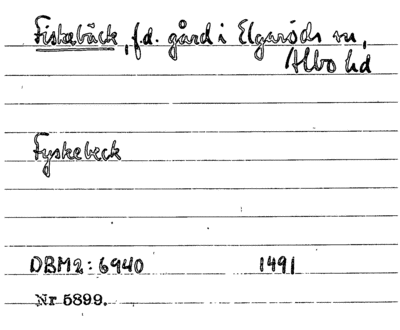 Fiskebäck, f.d. gård i Elgaröds sn,
Albo hd
Fyskebeck
DBM2: 6940 1491
Nr 5899.